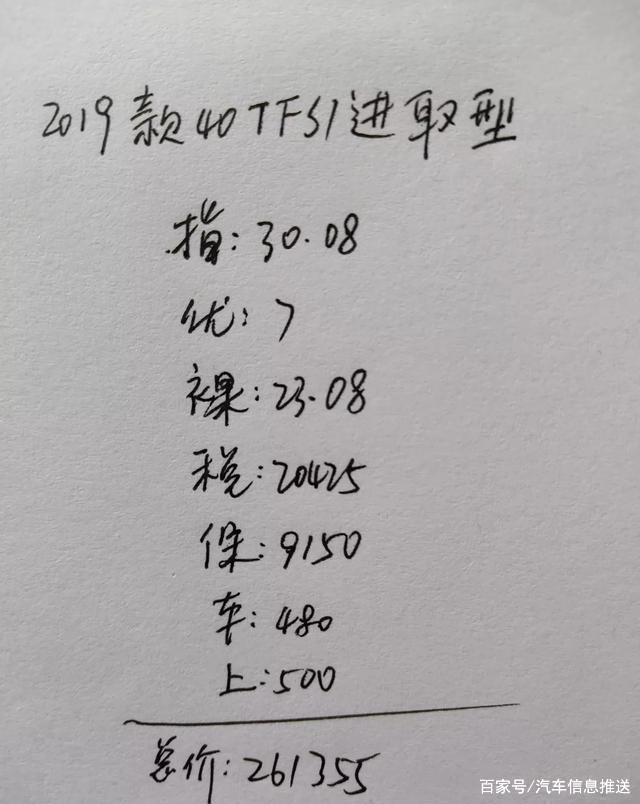 2019款40TFSI进取型
指:30.08
优:7
裸:23.08
税:20425
保:9150
车:480
上:500
总价:261355
百家号/汽车信息推送